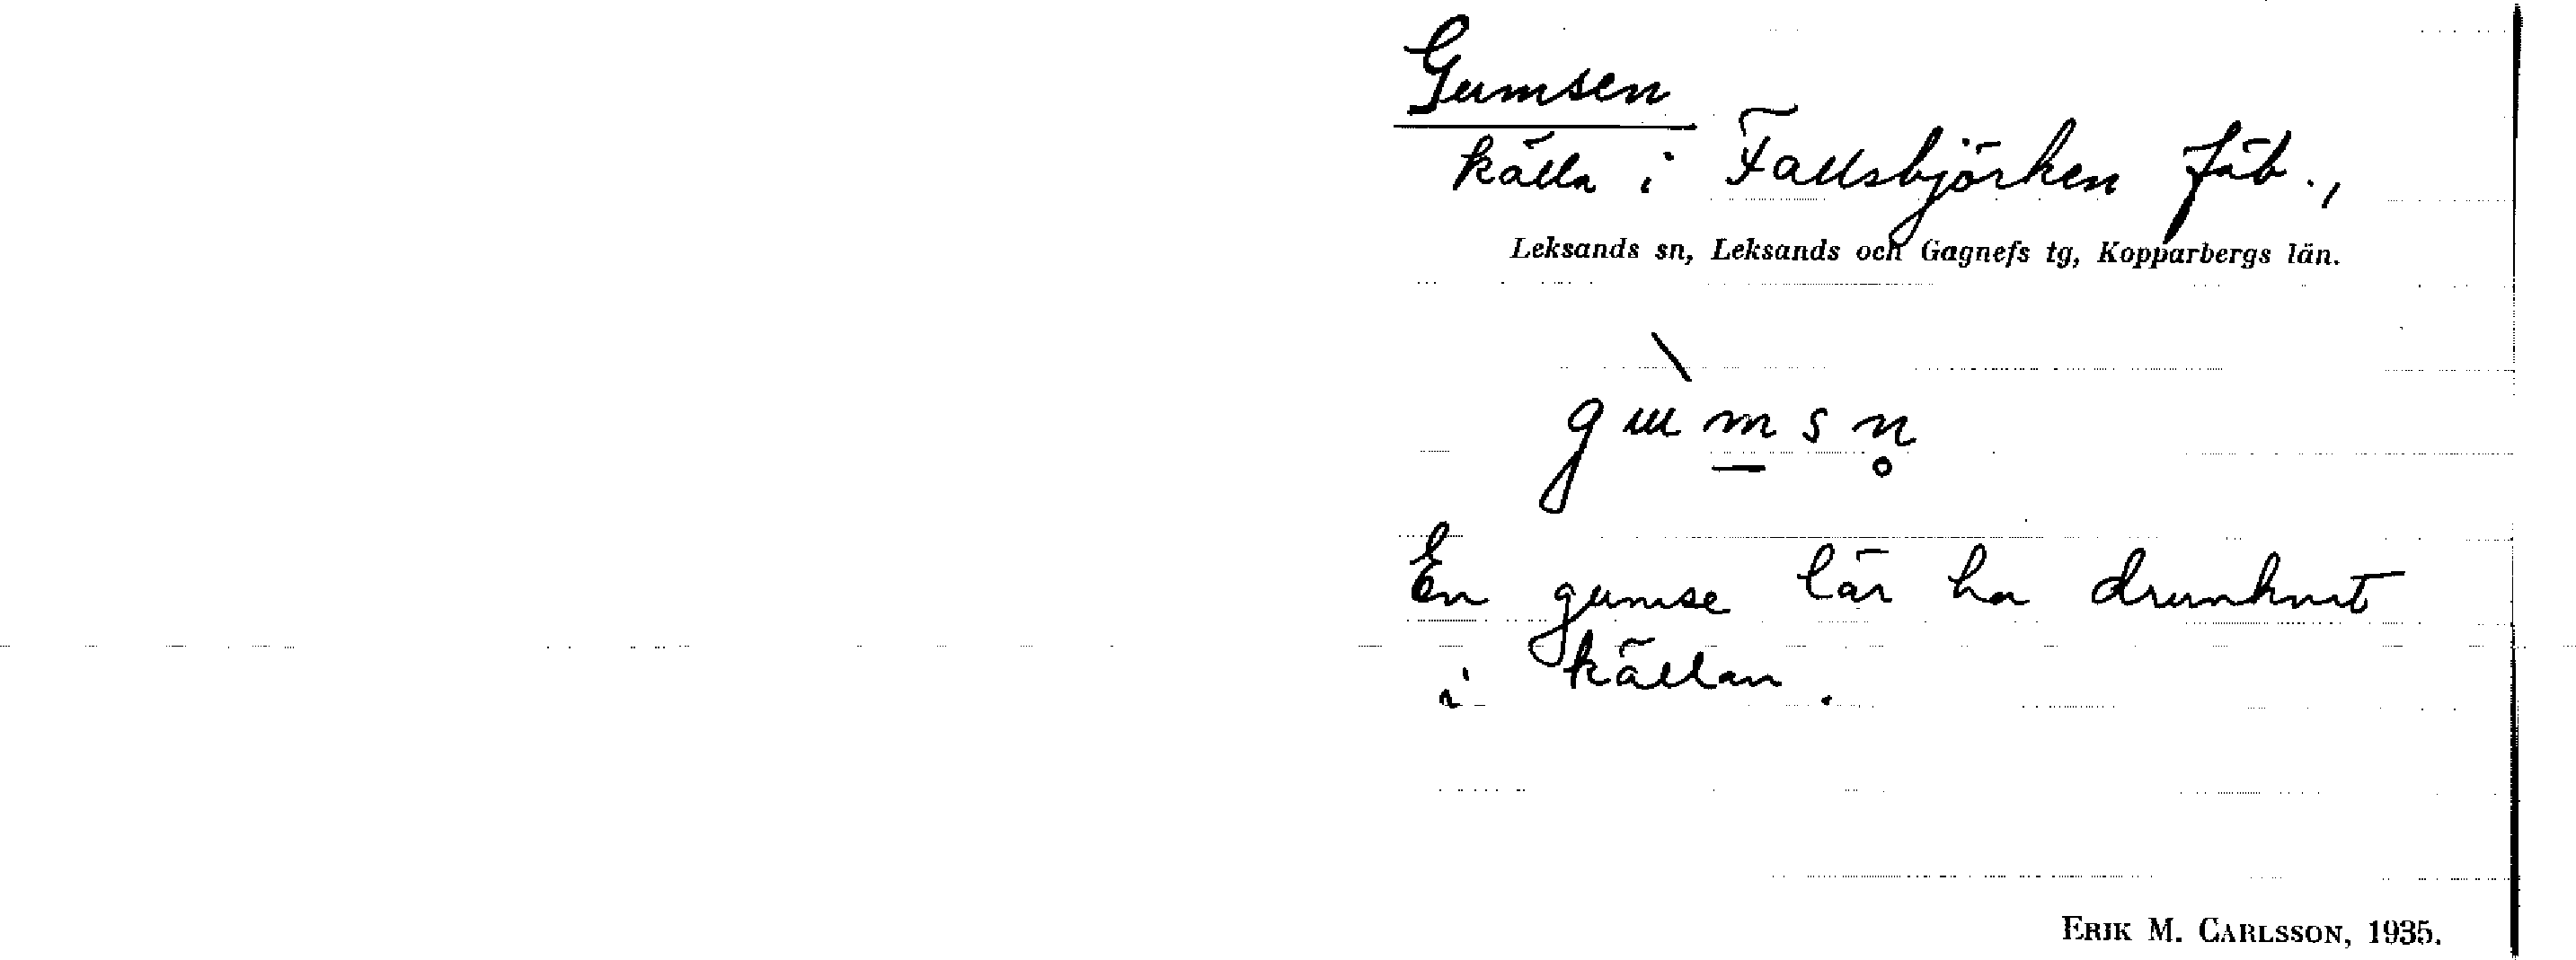 Gumsen
källa i Fallsbjörken fäb.,
Leksands sn, Leksands och Gagnefs tg, Kopparbergs län.
gɯ̀m̱sn̥
En gumse lär ha drunknat
i källan.
ERIK M. CARLSSON, 1935.